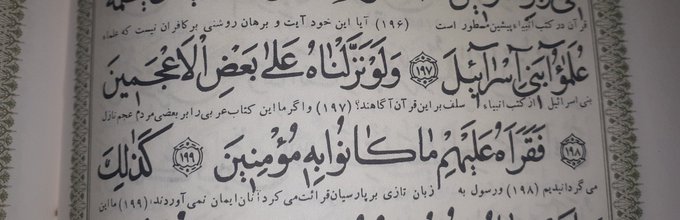 قرآن در کتب انبیاء پیشین مسطور است (۱۹۶) آیا این خود آیت و برهان روشنی بر کافران نیست که علماء
عُلَمٰٓؤُا بَنٓی اِسْرٰٓآئٖیلَ ﴿۱۹۷﴾ وَلَوْ نَزَّلْنَاهُ عَلیٰ بَعْضِ الْاَعْجَمٖینَ
بنی اسرائیل از کتب انبیاء سلف بر این قرآن آگاهند؟ (۱۹۷) و اگر ما این کتاب عربی را بر بعضی مردم عجم نازل
﴿۱۹۸﴾ فَقَرَاَهُ عَلَیْهِمْ مٰا کٰانُوا بِهٖ مُؤْمِنٖینَ ﴿۱۹۹﴾ کَذٰلِکَ
می‌گردانیدیم (۱۹۸) و رسول به زبان تازی بر پارسیان قرائت می‌کرد آنان ایمان نمی‌آوردند (۱۹۹) ما این